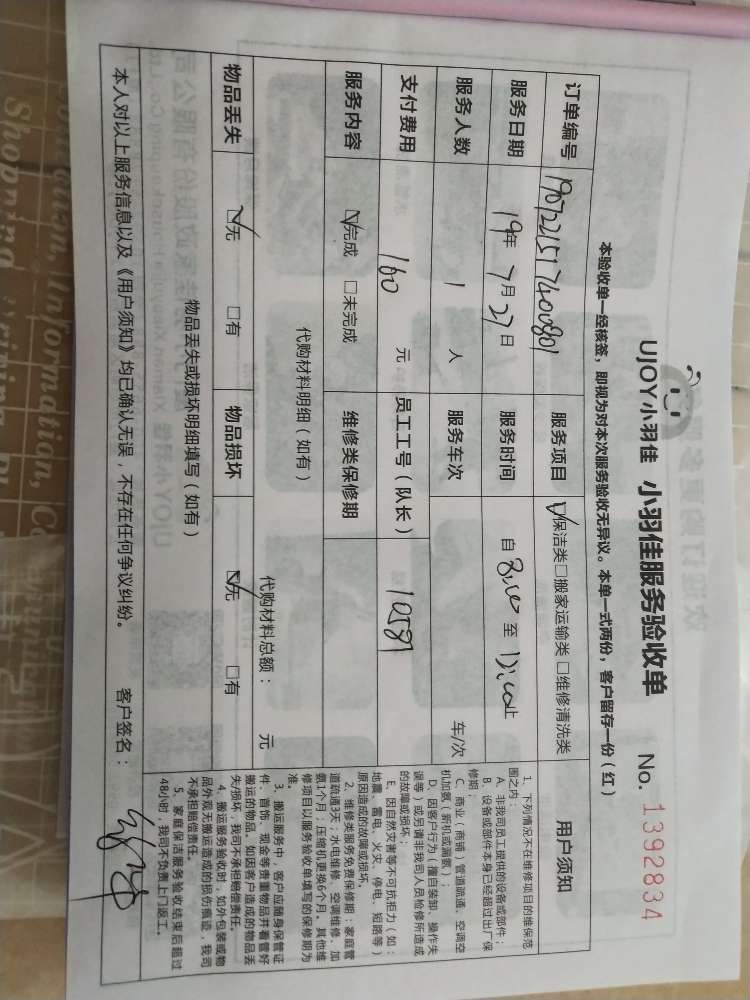 UJOY小羽佳 小羽佳服务验收单 No. 1392834
本验收单一经核签，即视为对本次服务验收无异议。本单一式两份，客户留存一份（红）
订单编号 服务项目 保洁类 □搬家运输类 □维修清洗类
服务日期 19年 7月27日 服务时间 自 8:00 至 12:00止
服务人数 1 人 服务车次 车/次
支付费用 160 元 员工工号（队长） 10581
服务内容 ☑完成 □未完成 维修类保修期
代购材料明细（如有）
代购材料总额： 元
物品丢失 ☑无 □有 物品损坏 ☑无 □有
物品丢失或损坏明细填写（如有）
本人对以上服务信息以及《用户须知》均已确认无误，不存在任何争议纠纷。 客户签名：
用户须知
1、下列情况不在维修项目的维保范
围之内：
A、非我司员工提供的设备或部件；
B、设备或部件本身已经超过出厂保
修期；
C、商业（商铺）管道疏通、空调空
机加氨（新机或漏氨）；
D、因客户行为（擅自装卸、操作失
误等）或另请非我司人员检修所造成
的故障或损坏；
E、因自然灾害等不可抗拒力（如：
地震、雷电、火灾、停电、短路等）
原因造成的故障或损坏。
2、维修类服务免费保修期：家庭管
道疏通3天；水电维修、空调维修、加
氨1个月；压缩机更换6个月，其他维
修项目以服务验收单填写的保修期为
准。
3、搬运服务中，客户应随身保管证
件、首饰、现金等贵重物品并看管好
搬运的物品，如因客户造成的物品丢
失/损坏，我司不承担赔偿责任。
4、搬运服务验收时，如外包装或物
品外观无搬运造成的损伤痕迹，我司
不承担赔偿责任。
5、家庭保洁服务验收结束后超过
48小时，我司不负责上门返工。